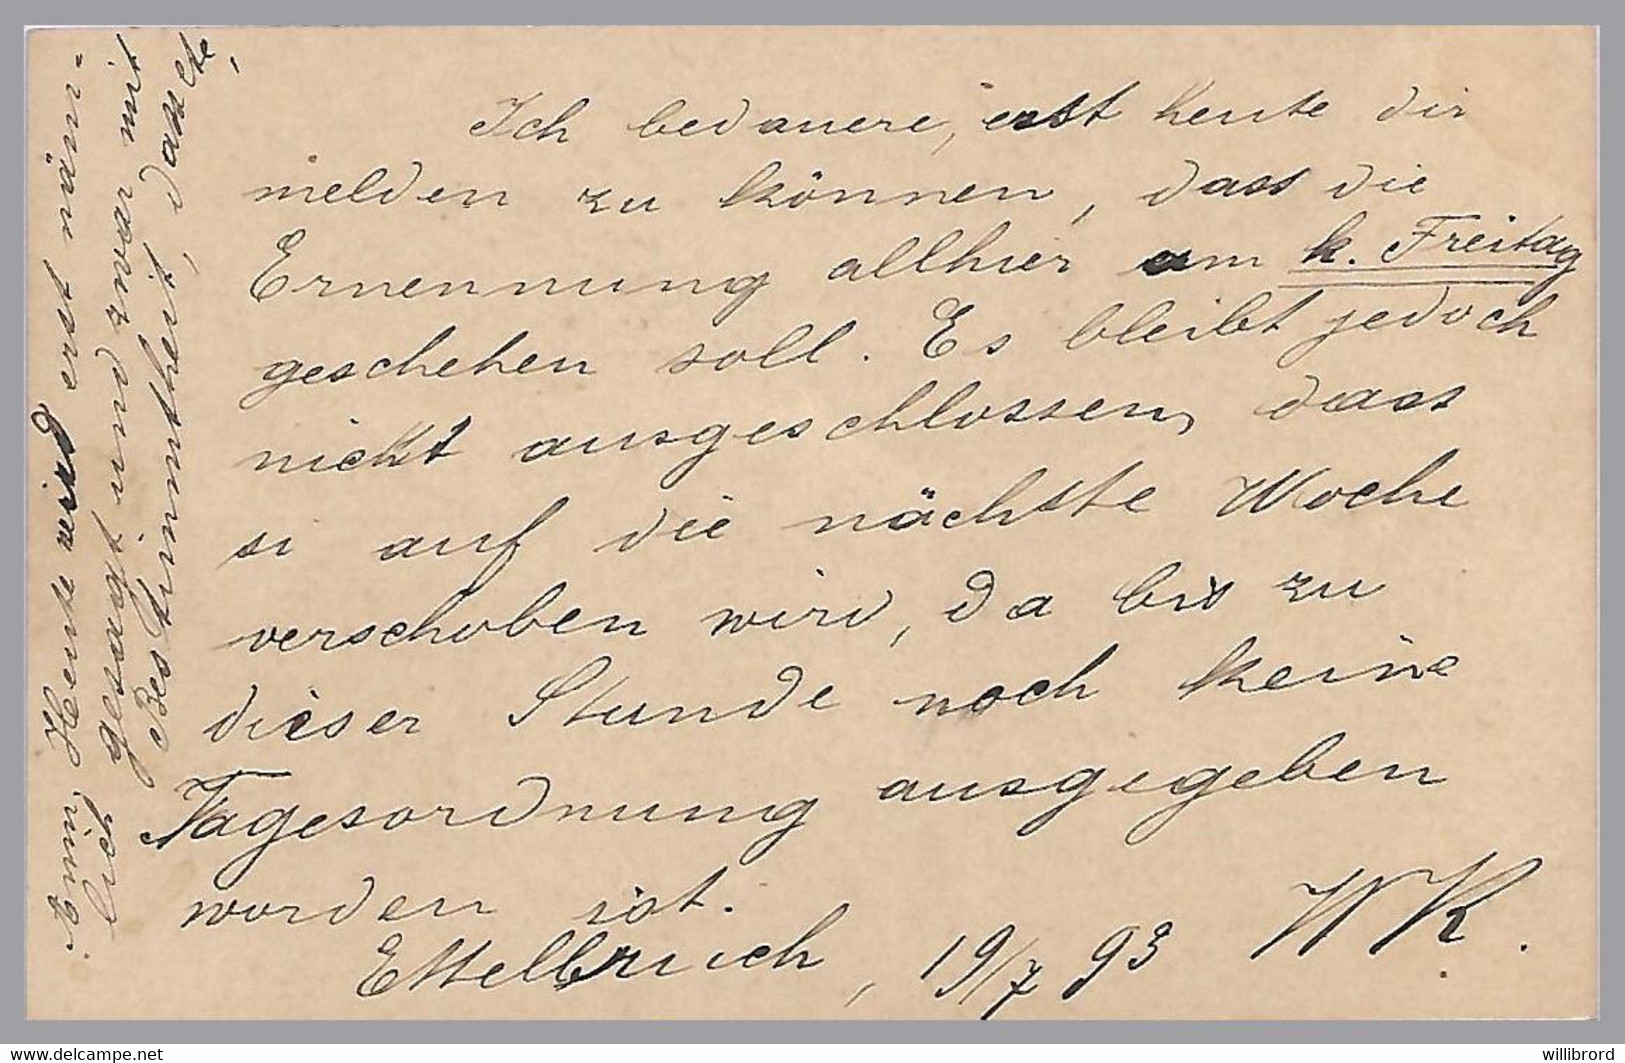 Ich bedauere, erst heute dir
melden zu können, dass die
Ernennung allhier am k. Freitag
geschehen soll. Es bleibt jedoch
nicht ausgeschlossen, dass
si auf die nächste Woche
verschoben wird, da bis zu
dieser Stunde noch keine
Tagesordnung ausgegeben
worden ist.
Ettelbrück, 19/7 93 WK.
Heute wird erst näm-
lich gesagt und zwar mit
Bestimmtheit, dass etc,
www.delcampe.net
willibrord